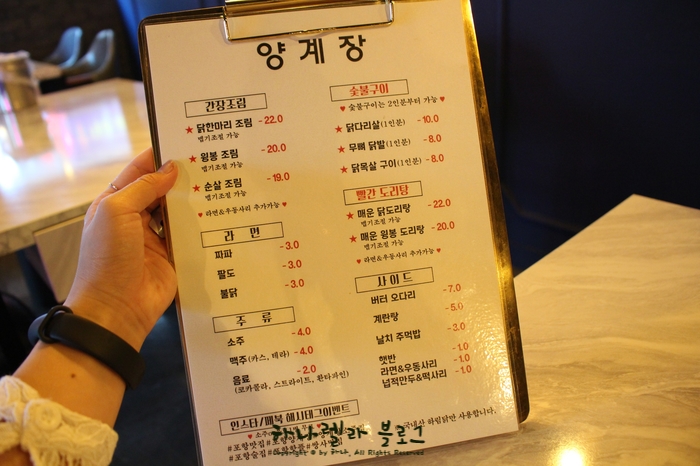 양계장
간장조림
★ 닭한마리 조림 -22.0
맵기조절 가능
★ 윙봉 조림 -20.0
맵기조절 가능
★ 순살 조림 -19.0
맵기조절 가능
♥ 라면&우동사리 추가가능 ♥
라 면
짜파 -3.0
팔도 -3.0
불닭 -3.0
주 류
소주 -4.0
맥주(카스, 테라) -4.0
음료 -2.0
(로카콜라, 스트라이트, 환타파인)
인스타/페북 해시태그이벤트
숯불구이
♥ 숯불구이는 2인분부터 가능 ♥
★ 닭다리살(1인분) -10.0
★ 무뼈 닭발(1인분) -8.0
★ 닭목살 구이(1인분) -8.0
빨간 도리탕
★ 매운 닭도리탕 -22.0
맵기조절 가능
★ 매운 윙봉 도리탕 -20.0
맵기조절 가능
♥ 라면&우동사리 추가가능 ♥
사이드
버터 오다리 -7.0
계란탕 -5.0
날치 주먹밥 -3.0
햇반 -1.0
라면&우동사리 -1.0
넙적만두&떡사리 -1.0
국내산 하림닭만 사용합니다.
하나렐라 블로그
Copyright © by 하나. All Rights Reserved